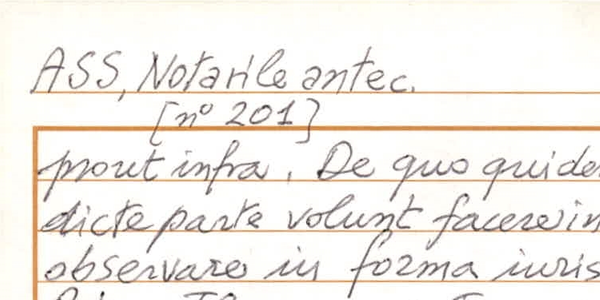 ASS, Notarile antec.
[nº 201]
prout infra. De quo quide
dicte parte volunt facere in
observare in forma iuris